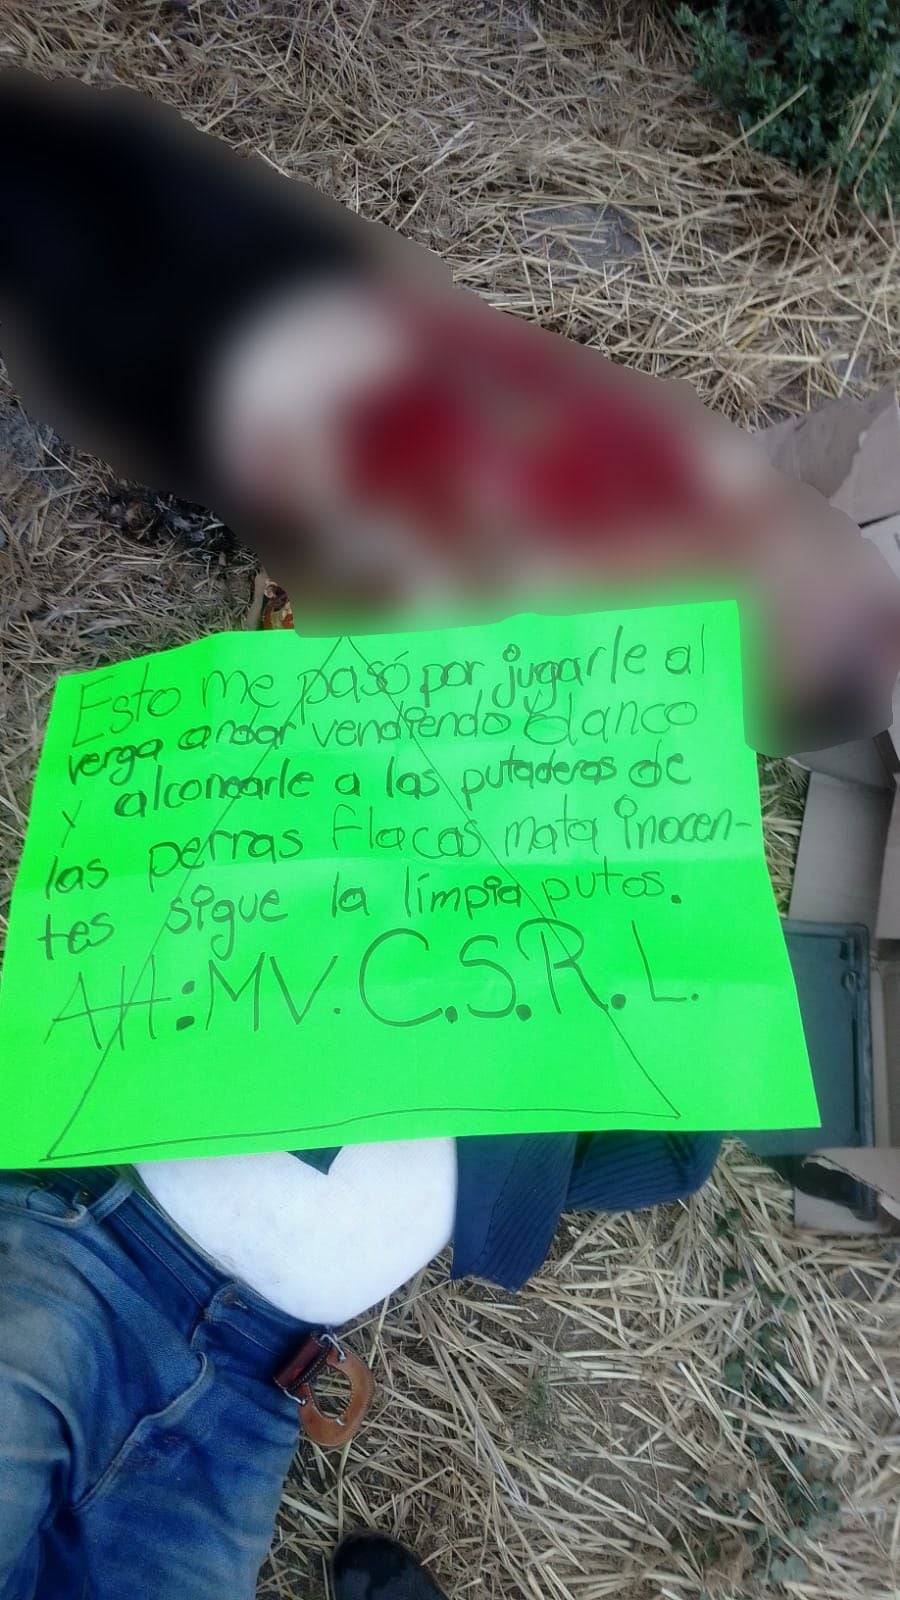 Esto me pasó por jugarle al
verga andar vendiendo blanco
y alconearle a las putaderas de
las perras flacas mata inocen-
tes sigue la limpia putos.
Att: MV. C.S.R.L.